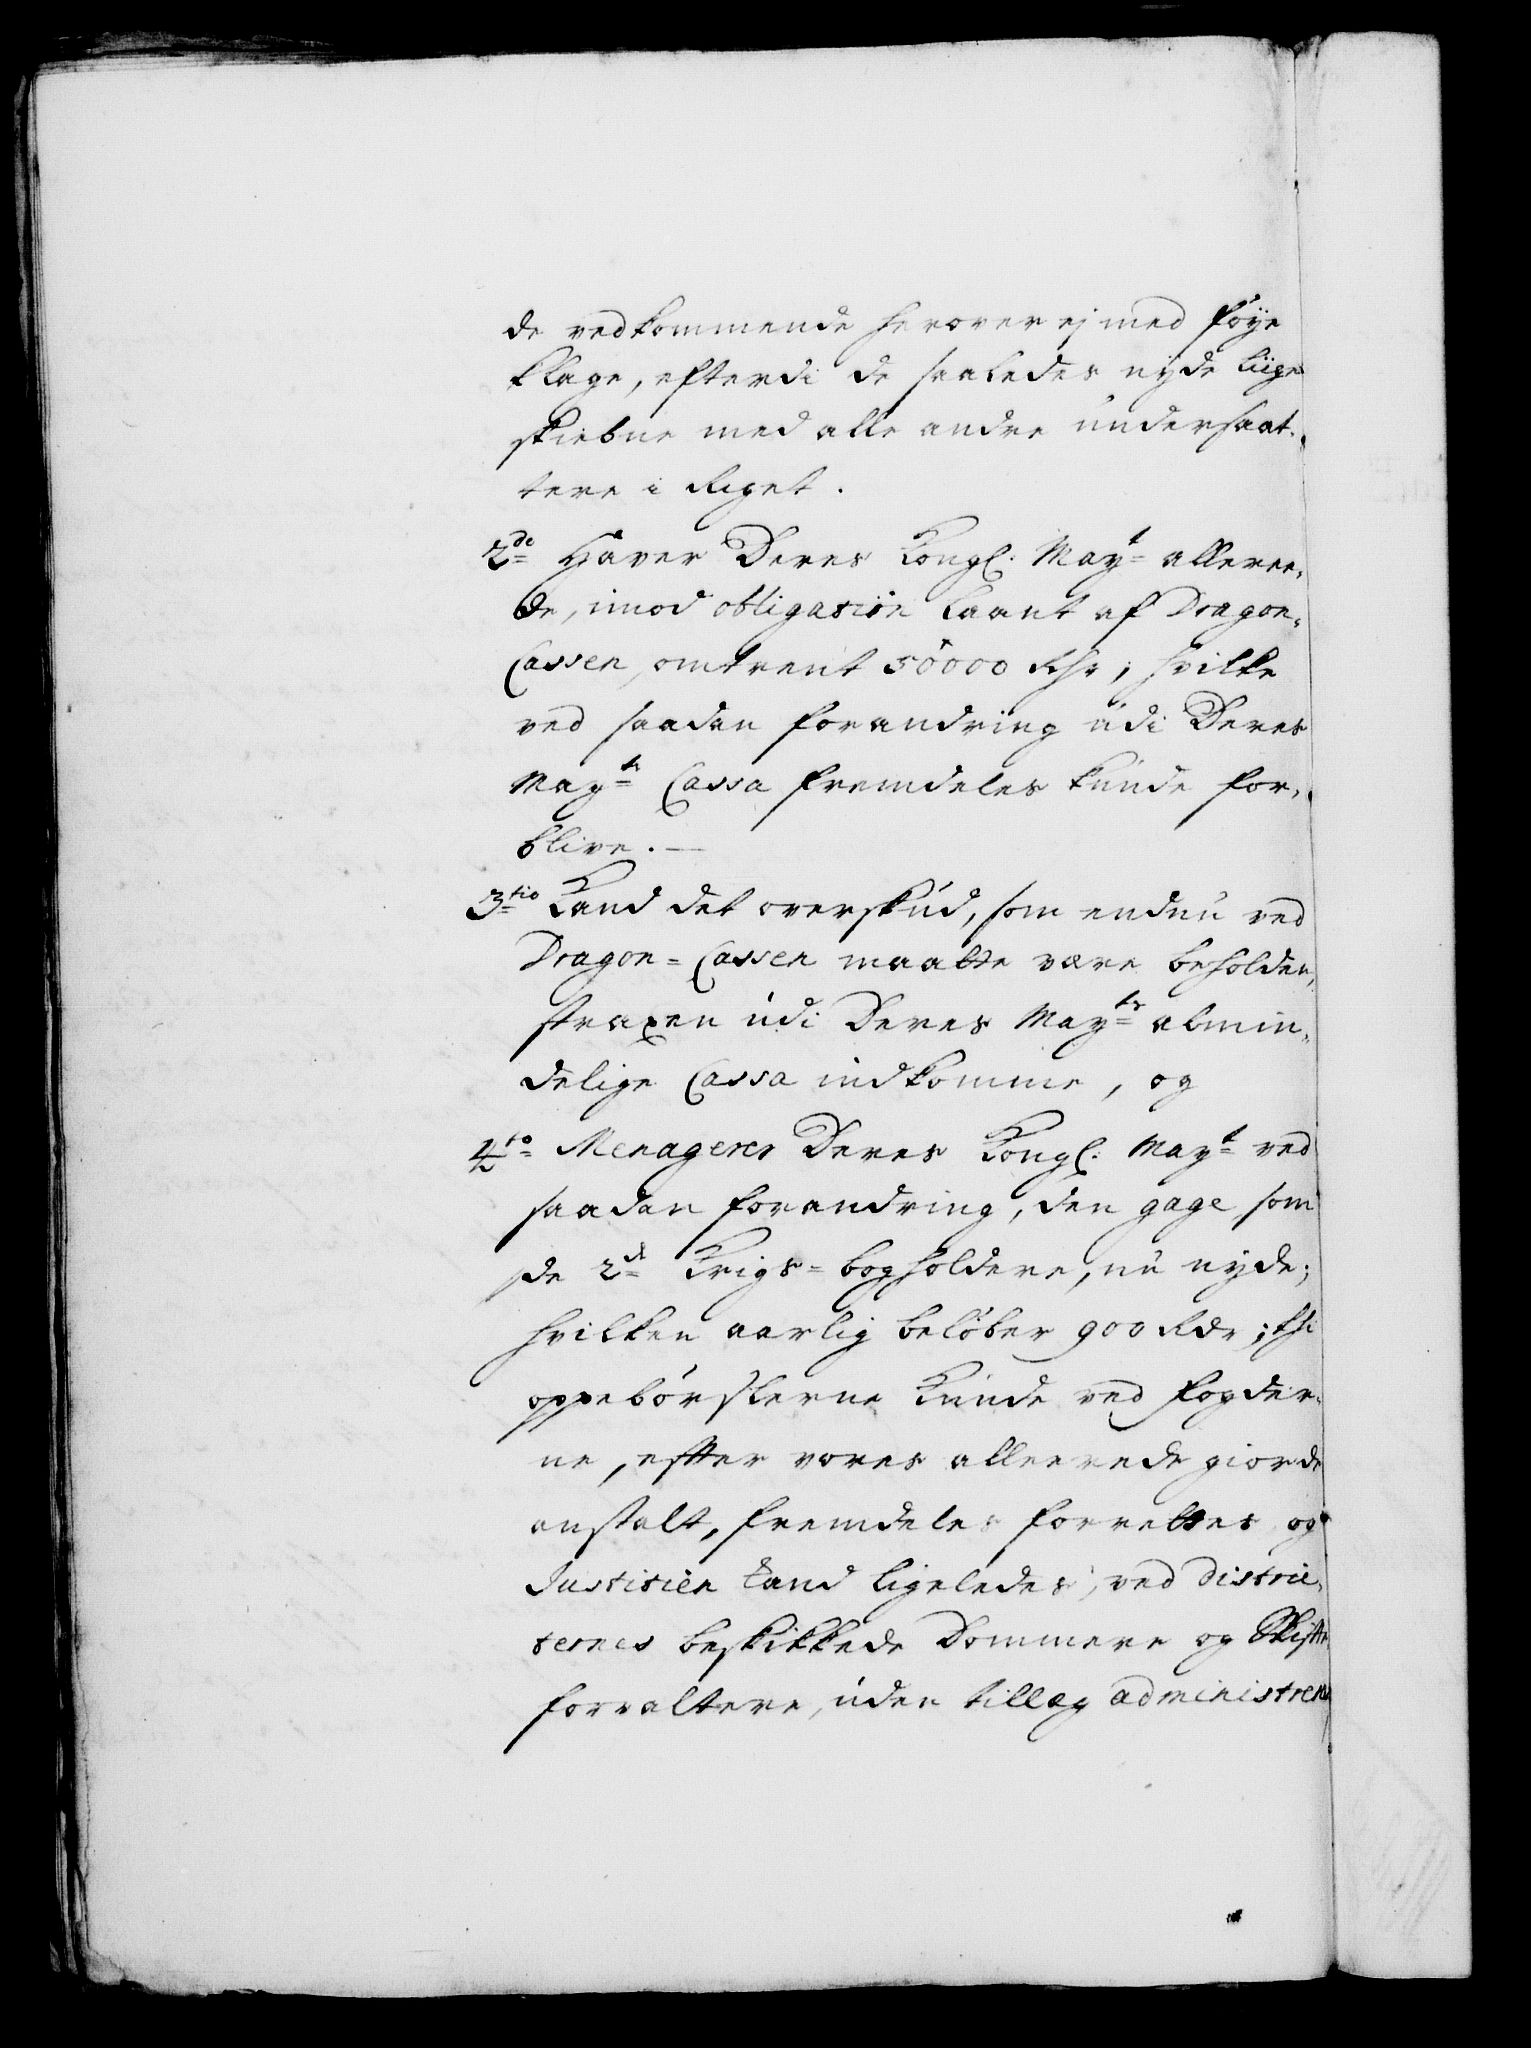 de vedkommende herover ej med föÿe
klage, efterdi de saaledes nÿde liige
skiebne med alle andre undersaat-
tere i Riget.
2de Haver Deres Kongl: Mayt alleree-
de, imod obligation laant af Dragon-
Cassen omtrent 50000 Rdr; hvilke
ved saadan forandring udi Deres
Mayts Cassa fremdeles kunde for-
blive. —
3tio Kand det overskud, som endnu ved
Dragon-Cassen maatte være beholden,
straxen udi Deres Mayts almin-
delige Cassa indkomme, og
4to Menagerer Deres Kongl: Mayt ved
saadan forandring, den gage som
de 2de Krigs-bogholdere, nu nyde;
hvilken aarlig belöber 900 Rdr; thi
oppebörslerne kunde ved fogder-
ne, effter vores allerede giorde
anstalt, fremdeles forrettes og
Justitien kand ligeledes, ved distric-
ternes beskikkede Dommere og Skiffte
forvaltere, uden tillæg administreres